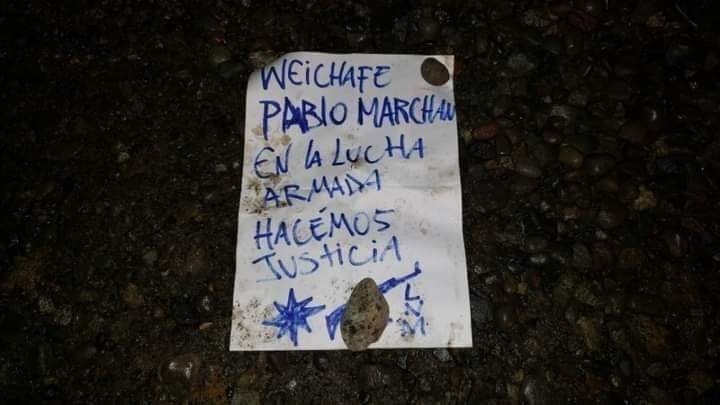 WEICHAFE
PABLO MARCHAN
EN LA LUCHA
ARMADA
HACÉMOS
JUSTICIA
LNM